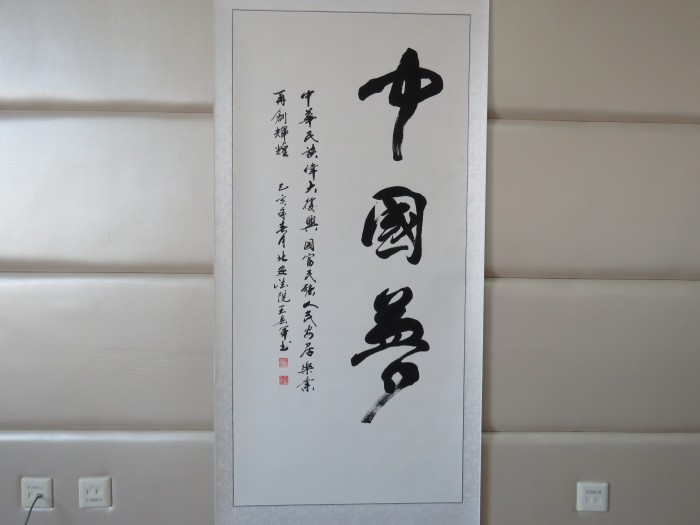 中國夢
中華民族偉大復興國富民強人民安居樂業
再創輝煌 乙亥年春月北安法院王長軍書